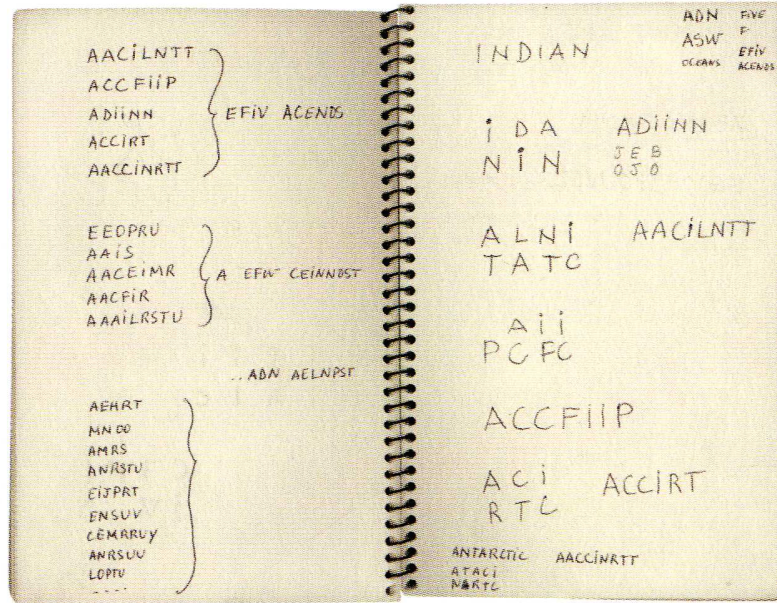 AACiLNTT
ACCFiiP
ADiiNN
ACCiRT
AACCiNRTT
EFiV ACENOS
EEOPRU
AAiS
AACEiMR
AACFiR
AAAiLRSTU
A EFiW CEiNNOST
...ADN AELNPST
AEHRT
MNOO
AMRS
ANRSTU
EiJPRT
ENSUV
CEMRRUY
ANRSUU
LOPTU
....
INDIAN
ADN FiVE
ASW F
EFiV
OCEANS ACENOS
i D A ADiiNN
N i N J E B
O J O
A L N i AACiLNTT
T A T C
A i i
P C F C
ACCFiiP
A C i ACCiRT
R T C
ANTARCTiC AACCiNRTT
ATACi
NRRTC